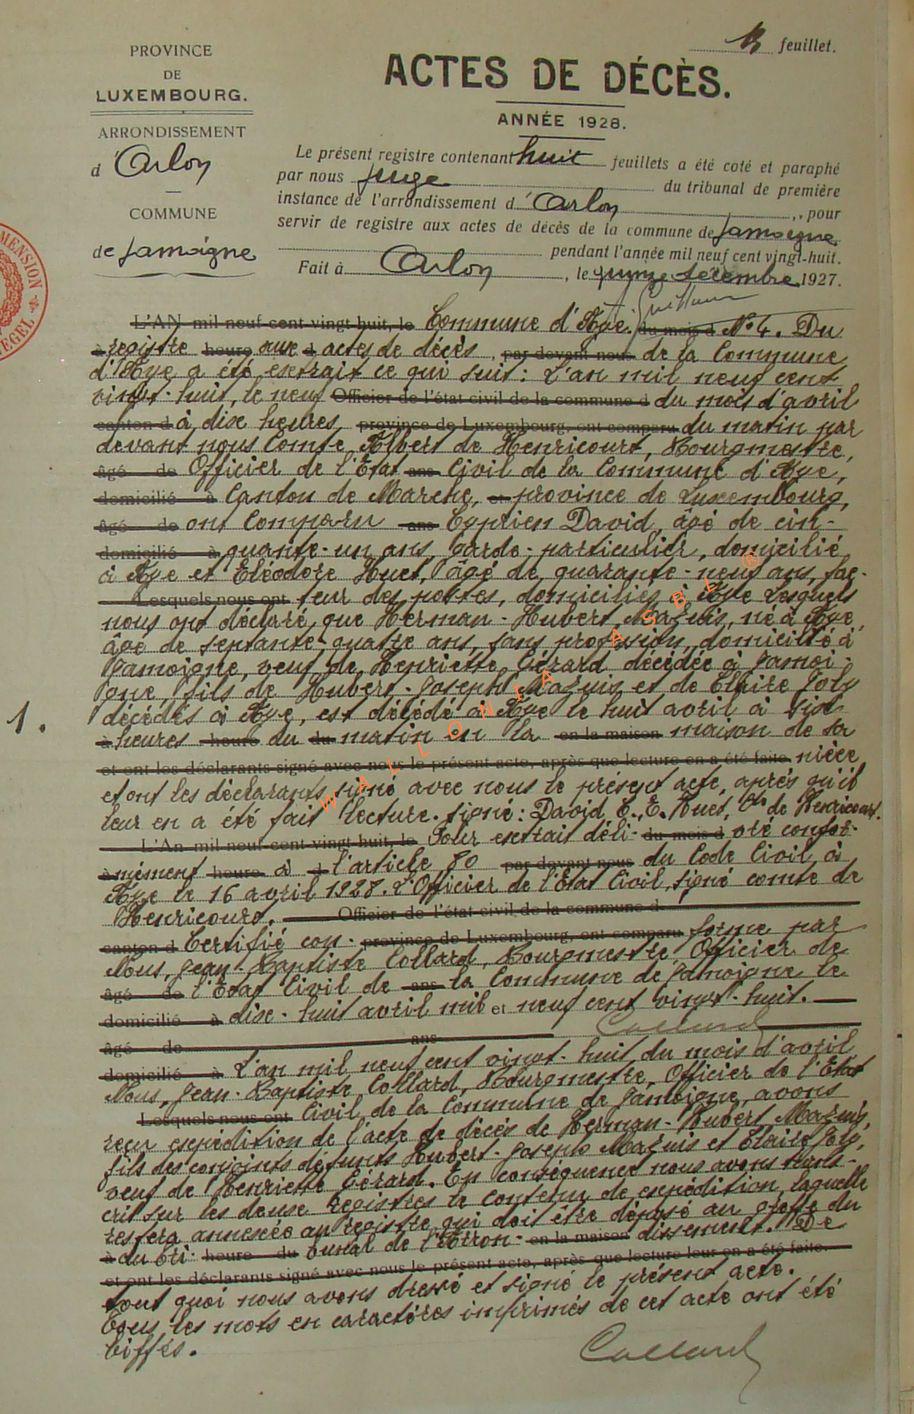 feuillet.
PROVINCE
DE
LUXEMBOURG.
ARRONDISSEMENT
d'Arlon
COMMUNE
de Jamoigne
ACTES DE DÉCÈS.
ANNÉE 1928.
Le présent registre contenant huit feuillets a été coté et paraphé
par nous juge du tribunal de première
instance de l'arrondissement d'Arlon, pour
servir de registre aux actes de décès de la commune de Jamoigne
pendant l'année mil neuf cent vingt-huit.
Fait à Arlon, le quinze décembre 1927.
L'AN mil neuf cent vingt-huit, le Commune d'Aye. du mois d N° 4. Du
à registre heure aux d actes de décès, par devant nous de la Commune
d'Aye a été extrait ce qui suit: L'an mil neuf cent
vingt-huit, le neuf Officier de l'état civil de la commune d du mois d'avril
canton d à dix heures province de Luxembourg, ont comparu du matin par
devant nous Comte Albert de Henricourt, Bourgmestre,
âgé de Officier de l'Etat ans Civil de la Commune d'Aye,
domicilié à Canton de Marche, et province de Luxembourg,
âgé de ont comparu ans Cyprien David, âgé de cin-
domicilié à quante-un ans, garde-particulier, domicilié
à Aye et Eléodore Huet, âgé de quarante-neuf ans, fac-
Lesquels nous ont teur des postes, domiciliés à Aye Lesquels
nous ont déclaré que Herman-Hubert Mazuis, né à Aye,
âgé de septante-quatre ans, sans profession, domicilié à
Jamoigne, veuf de Henriette Gérard décédée à Jamoi-
gne, fils de Hubert-Joseph Mazuis et de Claire Joly
1.
décédés à Aye, est décédé à Aye le huit avril à sept
à heures heure du du matin en la en la maison maison de sa
et ont les déclarants signé avec nous le présent acte, après que lecture en a été faite nièce
et ont les déclarants signé avec nous le présent acte, après qu'il
leur en a été fait lecture. signé: David C., E. Huet, Cte de Henricourt.
L'An mil neuf cent vingt-huit, le Pour extrait déli- du mois d vré confor-
à mément heure à d l'article 80 par devant nous du Code Civil, à
Aye le 16 avril 1928. L'Officier de l'Etat Civil, signé comte de
Henricourt. Officier de l'état civil de la commune d
canton d Certifié con- province de Luxembourg, ont comparu forme par
Nous, Jean-Baptiste Collard, Bourgmestre, Officier de
âgé de l'Etat Civil de ans la Commune de Jamoigne le
domicilié à dix-huit avril mil et neuf cent vingt-huit.
Collard
âgé de ans
domicilié à L'an mil neuf cent vingt-huit du mois d'avril
Nous, Jean-Baptiste Collard, Bourgmestre, Officier de l'Etat
Lesquels nous ont Civil de la Commune de Jamoigne, avons
reçu expédition de l'acte de décès de Herman-Hubert Mazuis,
fils des conjoints défunts Hubert-Joseph Mazuis et Claire Joly,
veuf de Henriette Gérard. En conséquence nous avons trans-
crit sur les deux registres le contenu de expédition, laquelle
restera annexée au registre qui doit être déposé au greffe du
à du tri- heure du bunal de l'Arron- en la maison dissement. De
et ont les déclarants signé avec nous le présent acte, après que lecture leur en a été faite.
tout quoi nous avons dressé et signé le présent acte.
Tous les mots en caractères imprimés de cet acte ont été
biffés.
Collard